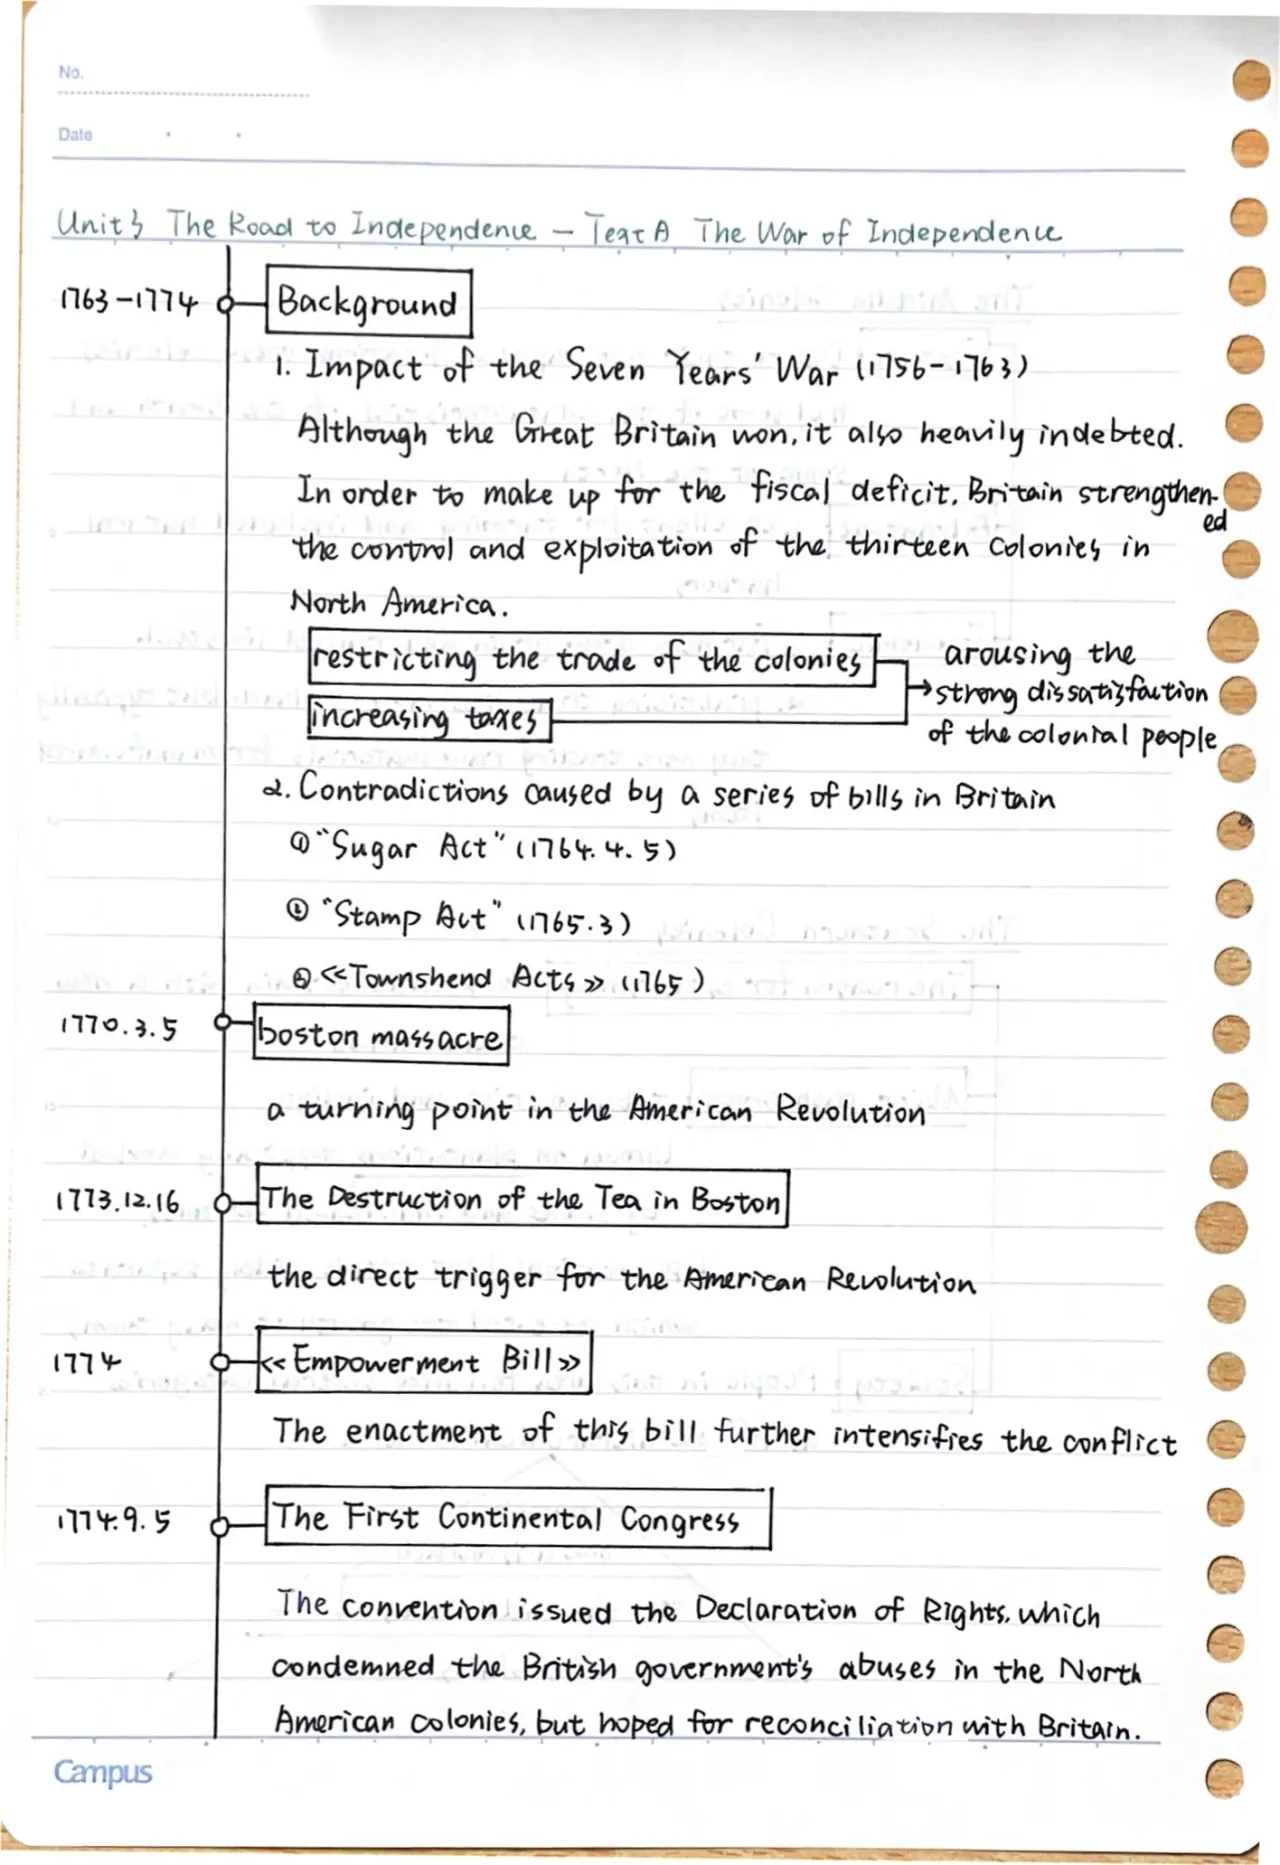 No.
Date
Unit 3 The Road to Independence — Text A The War of Independence
1763-1774 Background
1. Impact of the Seven Years' War (1756-1763)
Although the Great Britain won, it also heavily indebted.
In order to make up for the fiscal deficit, Britain strengthen-
ed
the control and exploitation of the thirteen colonies in
North America.
restricting the trade of the colonies
increasing taxes
arousing the
strong dissatisfaction
of the colonial people
2. Contradictions caused by a series of bills in Britain
① "Sugar Act" (1764.4.5)
② "Stamp Act" (1765.3)
③ «Townshend Acts» (1765)
1770.3.5 boston massacre
a turning point in the American Revolution
1773.12.16 The Destruction of the Tea in Boston
the direct trigger for the American Revolution
1774 «Empowerment Bill»
The enactment of this bill further intensifies the conflict
1774.9.5 The First Continental Congress
The convention issued the Declaration of Rights, which
condemned the British government's abuses in the North
American colonies, but hoped for reconciliation with Britain.
Campus